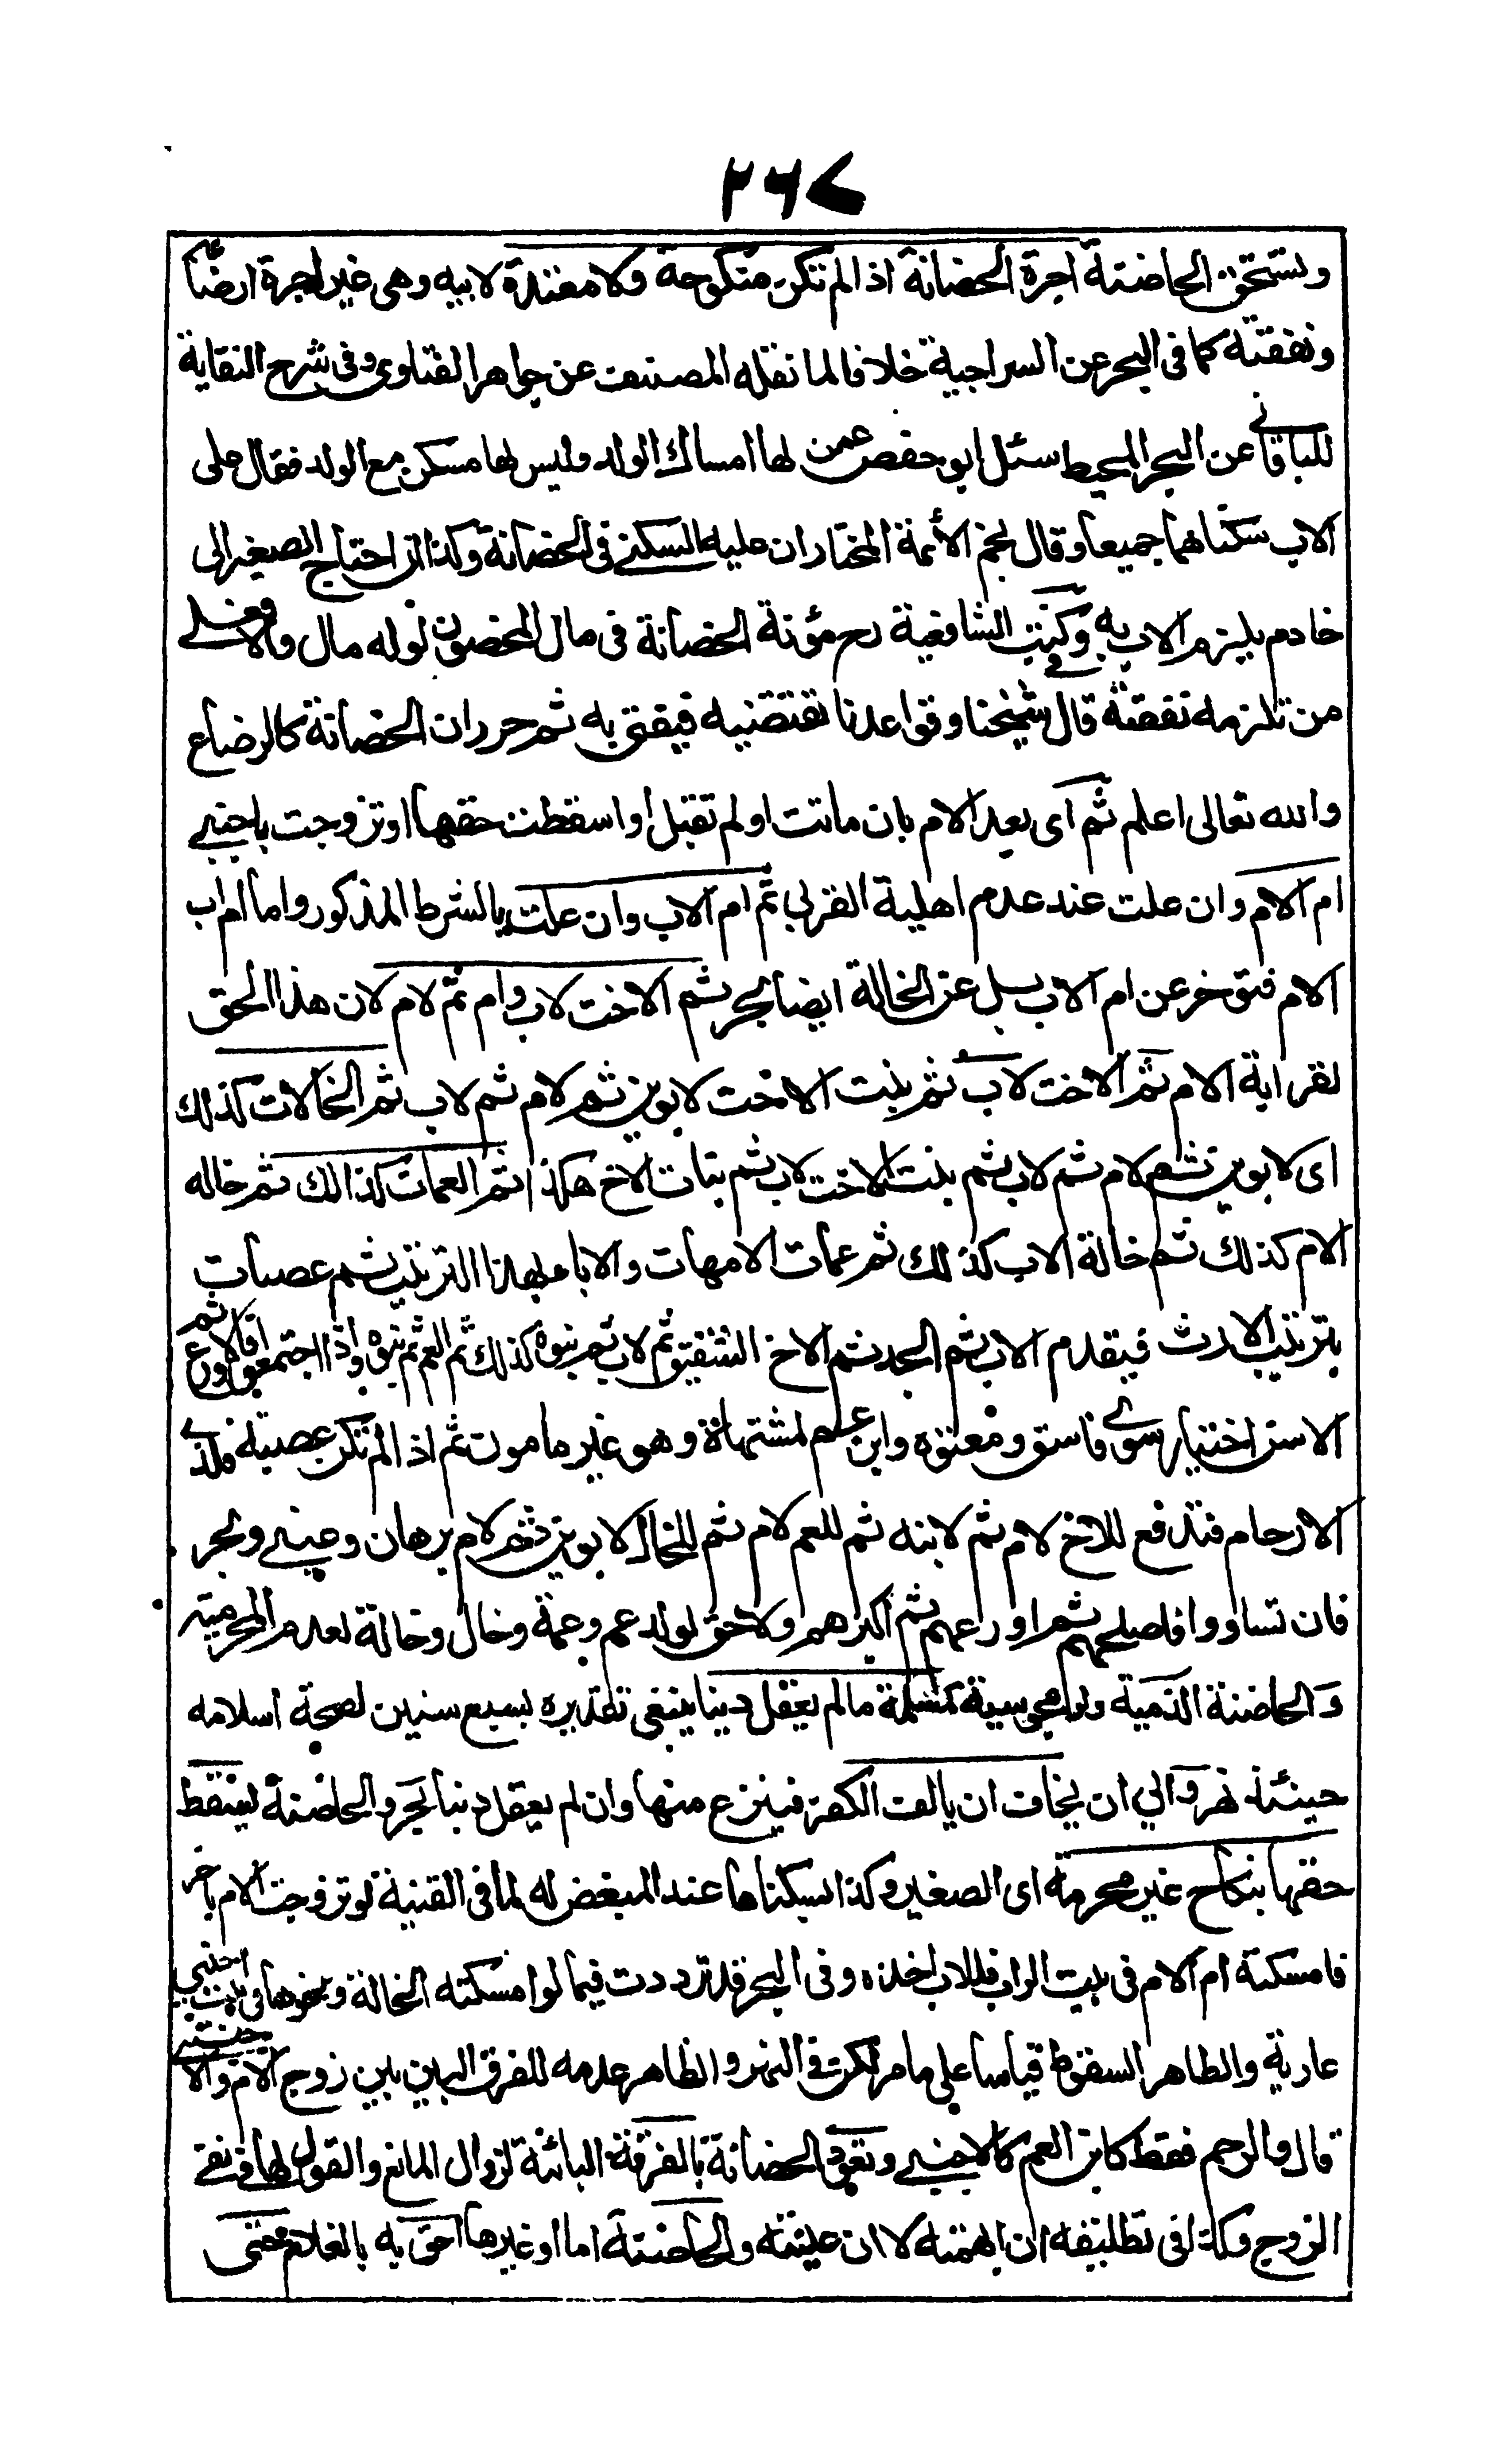 ٢٦٧
وتستحق الحاضنة اجرة الحضانة اذا لم تكن منكوحة ولا معتدة لابيه وهى غير اجرة ارضاعه
ونفقته كما فى البحر عن السراجية خلافا لما نقله المصنف عن جواهر الفتاوى وفى شرح النقاية
للباقانى عن البحر المحيط سئل ابو حفص عمن لها امساك الولد وليس لها مسكن مع الولد فقال على
الاب سكناهما جميعا وقال نجم الأئمة المختار ان عليه السكنى فى الحضانة وكذا ان احتاج الصغير الى
خادم يلزم الاب به وكتب الشافعية رح مؤنة الحضانة فى مال المحضون لو له مال والا فعلى
من تلزمه نفقته قال شيخنا وقواعدنا تقتضيه فيفتى به ثم حرر ان الحضانة كالرضاع
والله تعالى اعلم ثم اى بعد الام بان ماتت او لم تقبل او اسقطت حقها او تزوجت باجنبى
ام الام وان علت عند عدم اهلية القربى ثم ام الاب وان علت بالشرط المذكور واما ام اب
الام فتؤخر عن ام الاب بل عن الخالة ايضا بحر ثم الاخت لاب وام ثم لام لان هذا الحق
لقرابة الام ثم الاخت لاب ثم بنت الاخت لابوين ثم لام ثم لاب ثم الخالات كذلك
اى لابوين ثم لام ثم لاب ثم بنت الاخت لاب ثم بنات الاخ هكذا ثم العمات كذالك ثم خاله
الام كذلك ثم خالة الاب كذلك ثم عمات الامهات والاباء بهذا الترتيب ثم عصبات
بترتيب الارث فيقدم الاب ثم الجد ثم الاخ الشقيق ثم لاب ثم بنوه كذلك ثم العم ثم بنوه واذا اجتمعوا فالاورع ثم
الاسن اختيار سوى فاسق ومعتوه وابن عم لمشتهاة وهو غير مامون ثم اذا لم تكن عصبة فلذى
الارحام فتدفع للاخ لام ثم لابنه ثم للعم لام ثم للخال لابوين ثم لام برهان وعينى وبحر
فان تساووا فاصلحهم ثم اورعهم ثم اكبرهم ولا حق لولد عم وعمة وخال وخالة لعدم المحرمية
والحاضنة الذمية ولو مجوسية كمسلمة ما لم يعقل دينا ينبغى تقديره بسبع سنين لصحة اسلامه
حينئذ نهر والى ان يخاف ان يالف الكفر فينزع منها وان لم يعقل دينا بحر والحاضنة يسقط
حقها بنكاح غير محرمه اى الصغير وكذا بسكناها عند المبغض له لما فى القنية لو تزوجت الام باخر
فامسكته ام الام فى بيت الراب فللاب اخذه وفى البحر قد ترددت فيما لو امسكته الخالة ونحوها فى بيت اجنبى
عازبة والظاهر السقوط قياسا على ما مر لكن فى النهر والظاهر عدمه للفرق البين بين زوج الام والاجنبى
قال والرحم فقط كابن العم كالاجنبى وتعود الحضانة بالفرقة البائنة لزوال المانع والقول لها فى نفى
الزوج وكذا فى تطليقه ان ابهمته لا ان عينته والحاضنة اما او غيرها احق به بالغلام حتى